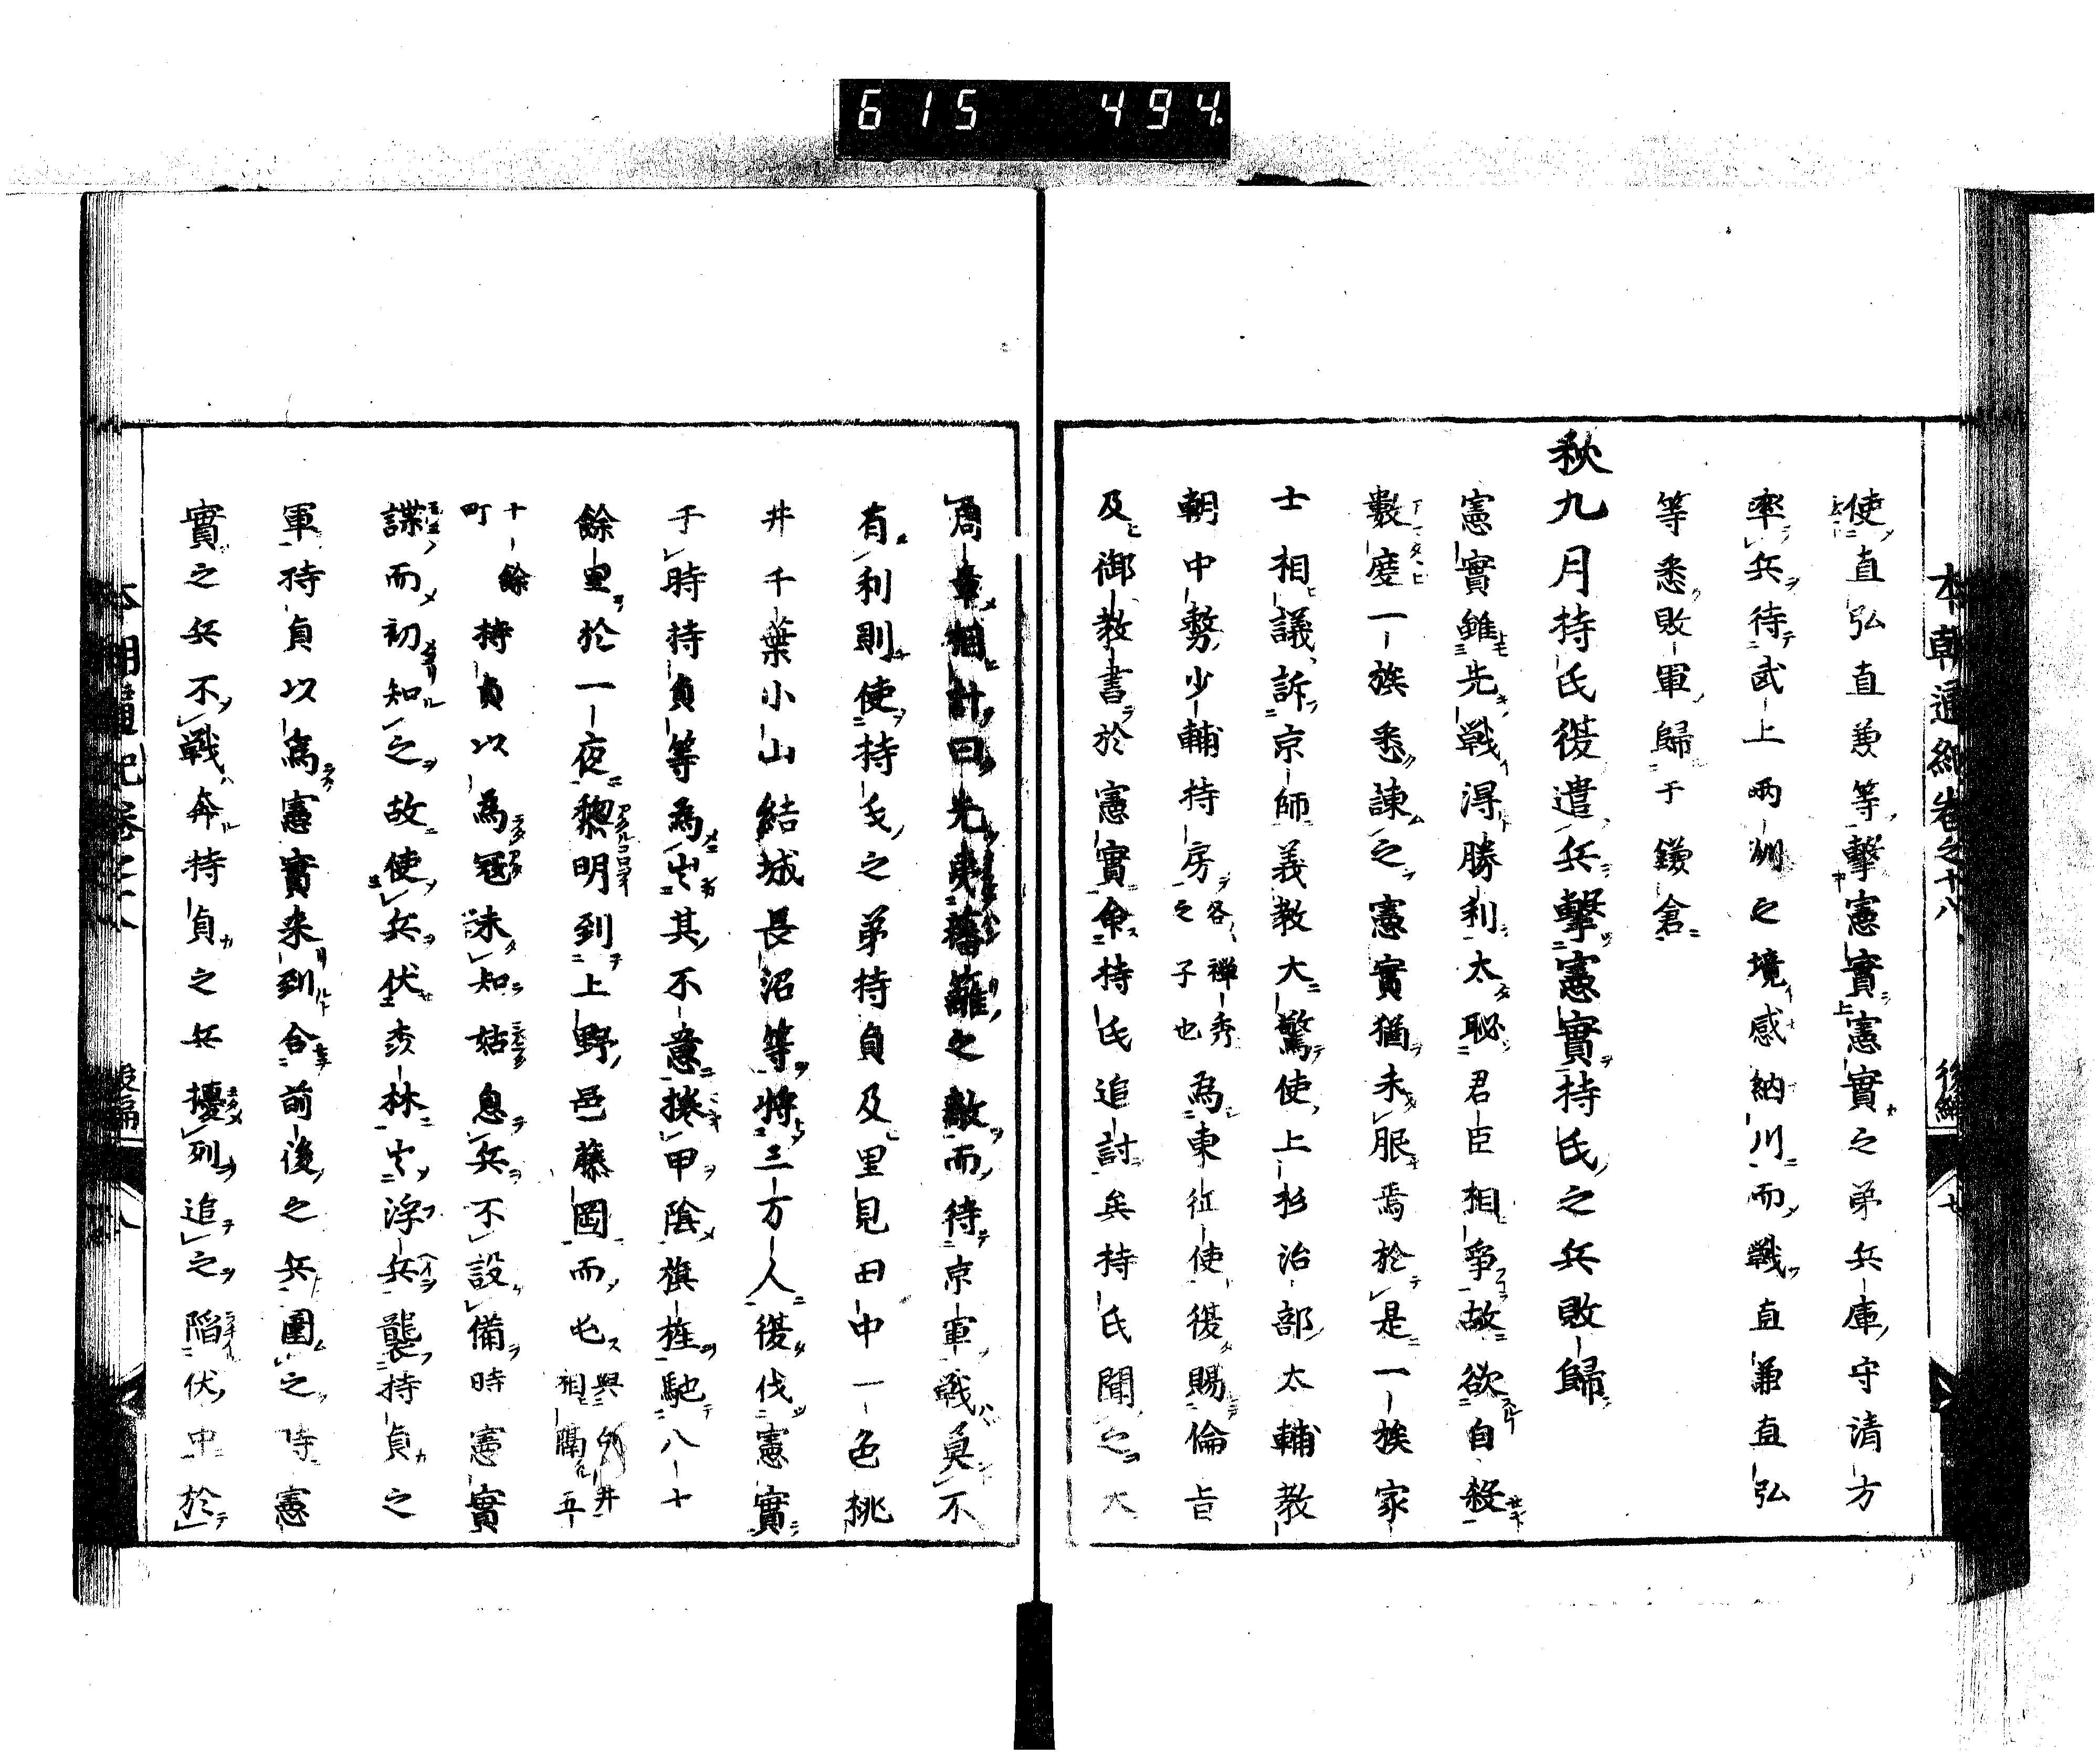 615 494.
本朝通紀卷之十八 後編 七
使直弘直兼等擊憲實憲實之弟兵庫守清方
率兵待武上兩州之境感納川而戰直兼直弘
等悉敗軍歸于鎌倉
秋九月持氏復遣兵擊憲實持氏之兵敗歸
憲實雖先戰得勝利太恥君臣相爭故欲自殺
數度一族悉諫之憲實猶未服焉於是一族家
士相議訴京師義教大驚使上杉治部太輔教
朝中務少輔持房各禪秀之子也為東征使復賜倫旨
及御教書於憲實命持氏追討矣持氏聞之大
周章相計曰先夷藩籬之敵而待京軍戰莫不
有利則使持氏之弟持貞及里見田中一色桃
井千葉小山結城長沼等將三万人復伐憲實
于時持貞等為出其不意揆甲陰旗旌馳八十
餘里於一夜黎明到上野邑藤岡而屯與白井相隔五
十餘町持貞以為冦未知姑息兵不設備時憲實
諜而初知之故使兵伏森林出浮兵襲持貞之
軍持貞以為憲實来到合前後之兵圍之時憲
實之兵不戰奔持貞之兵擾列追之陷伏中於
本朝通紀卷之十八 後編 八